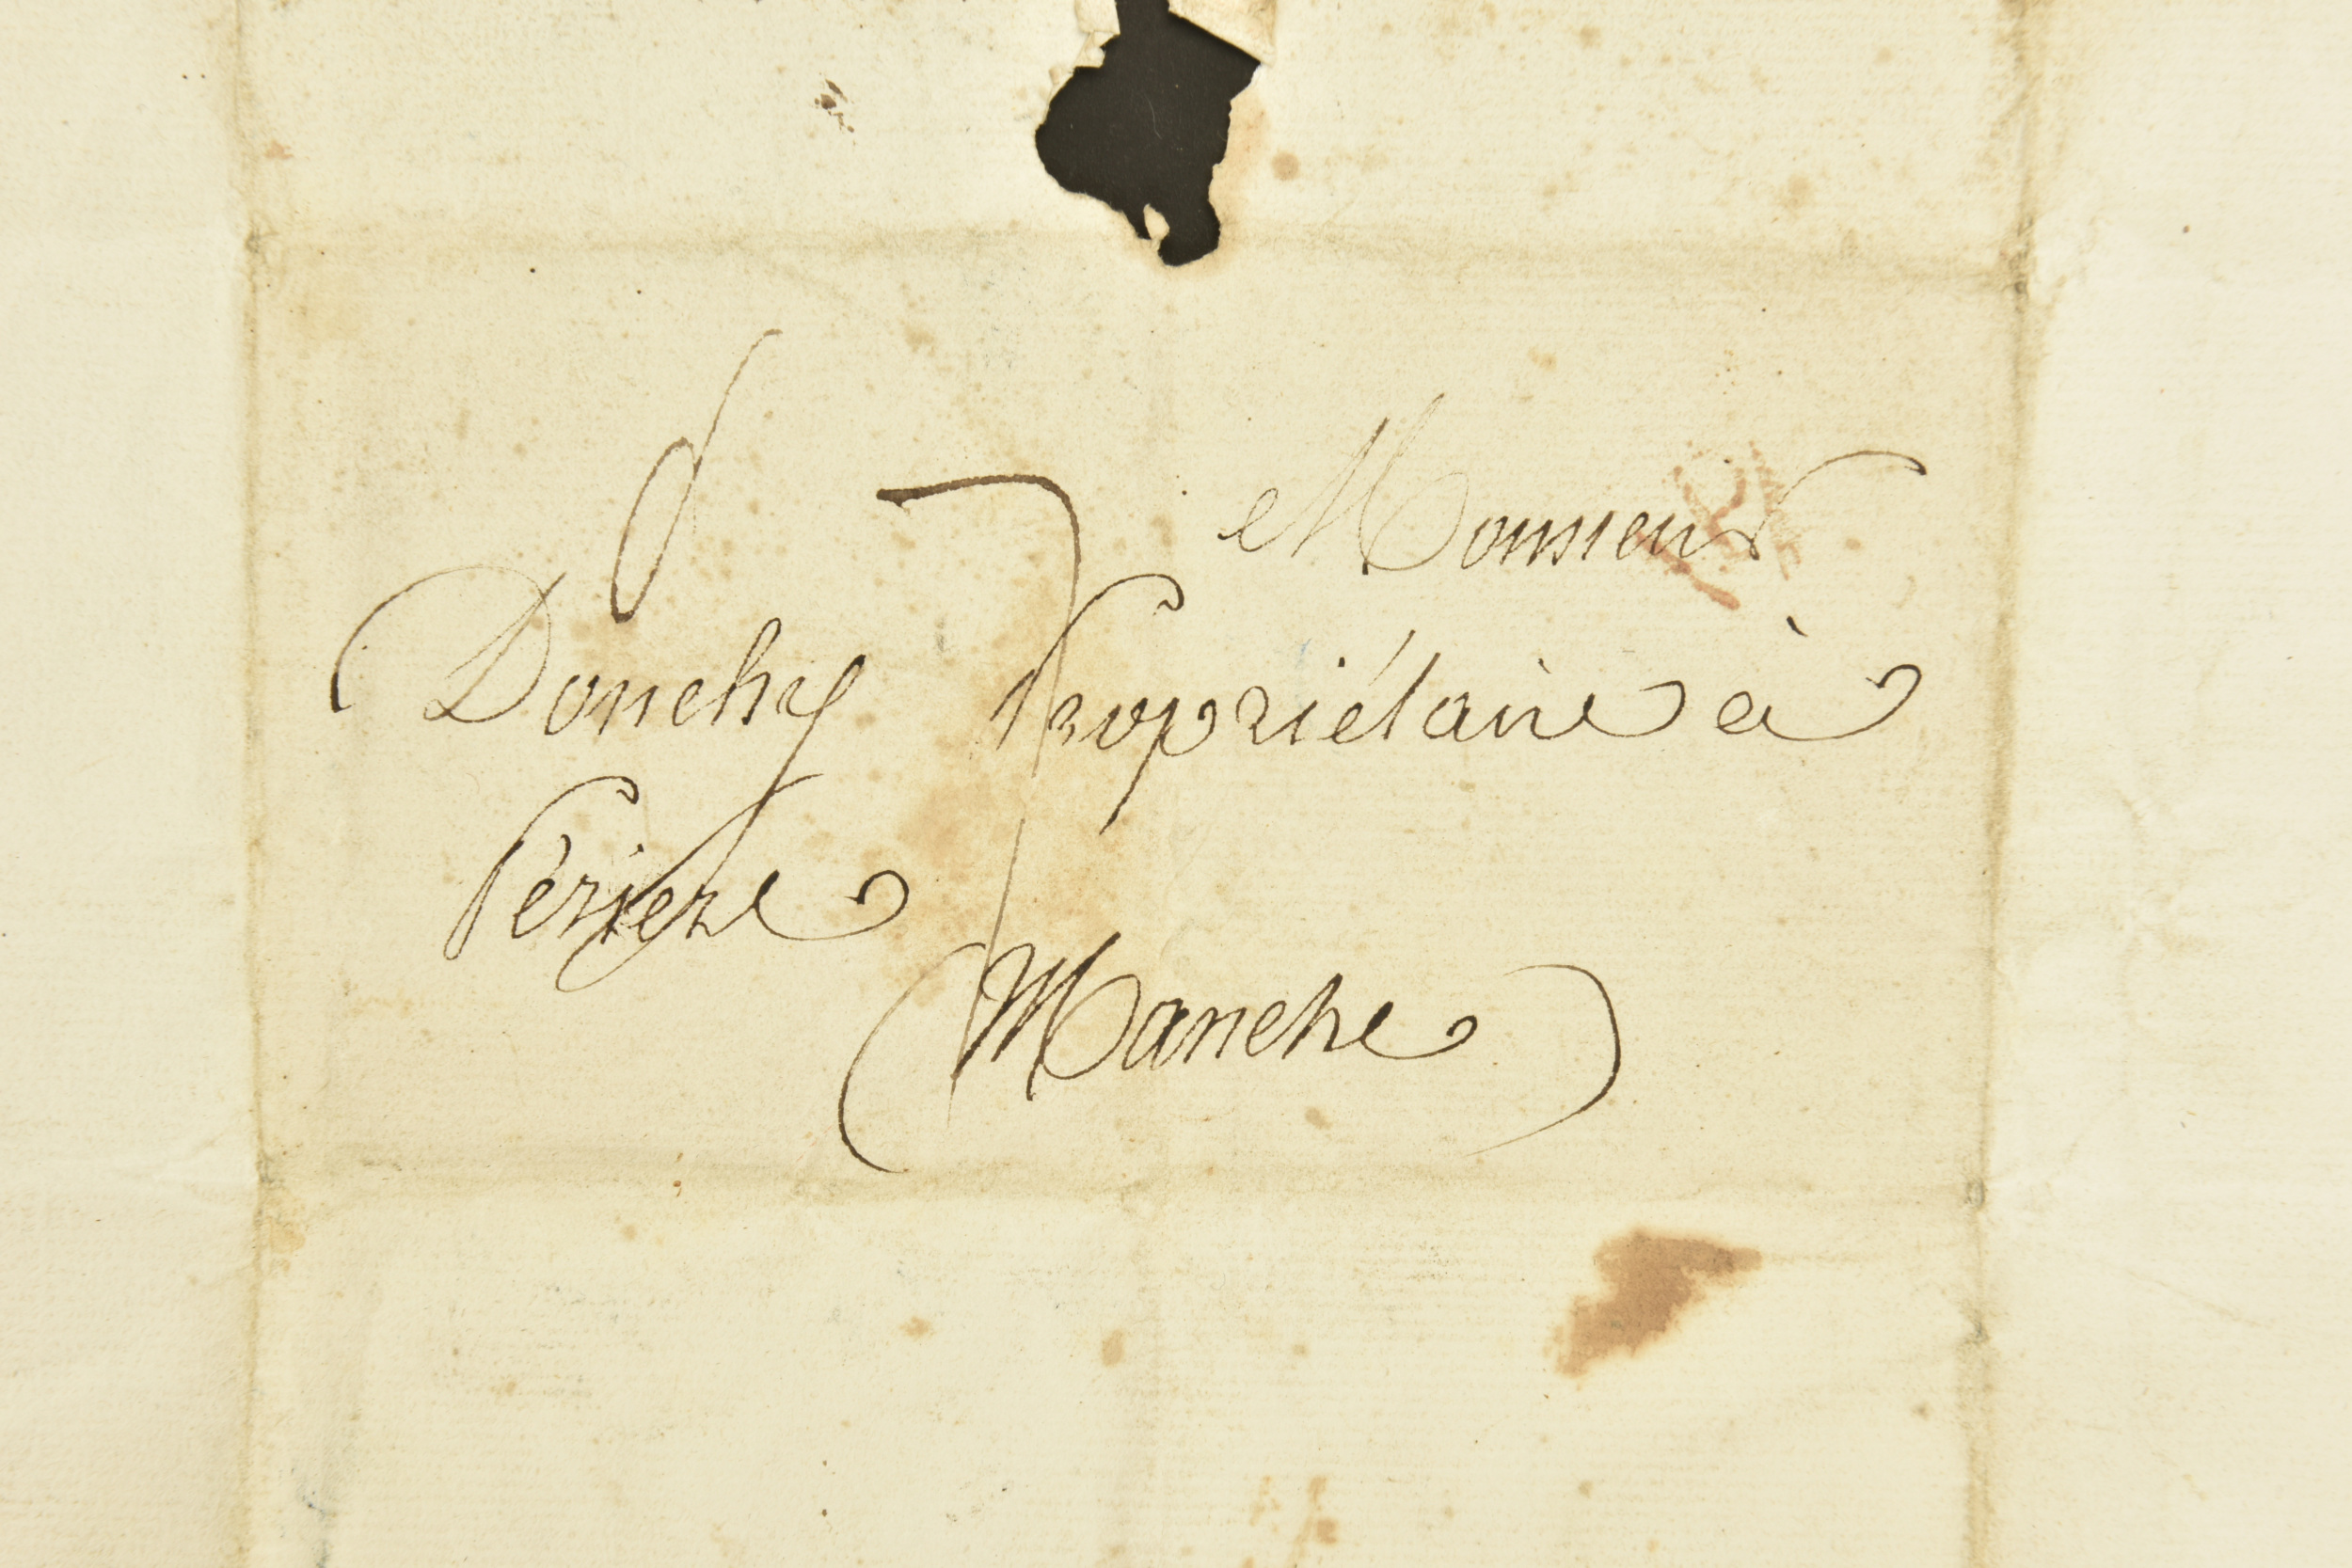 Monsieur
Douchy Propriétaire à
Périere
(Manche)